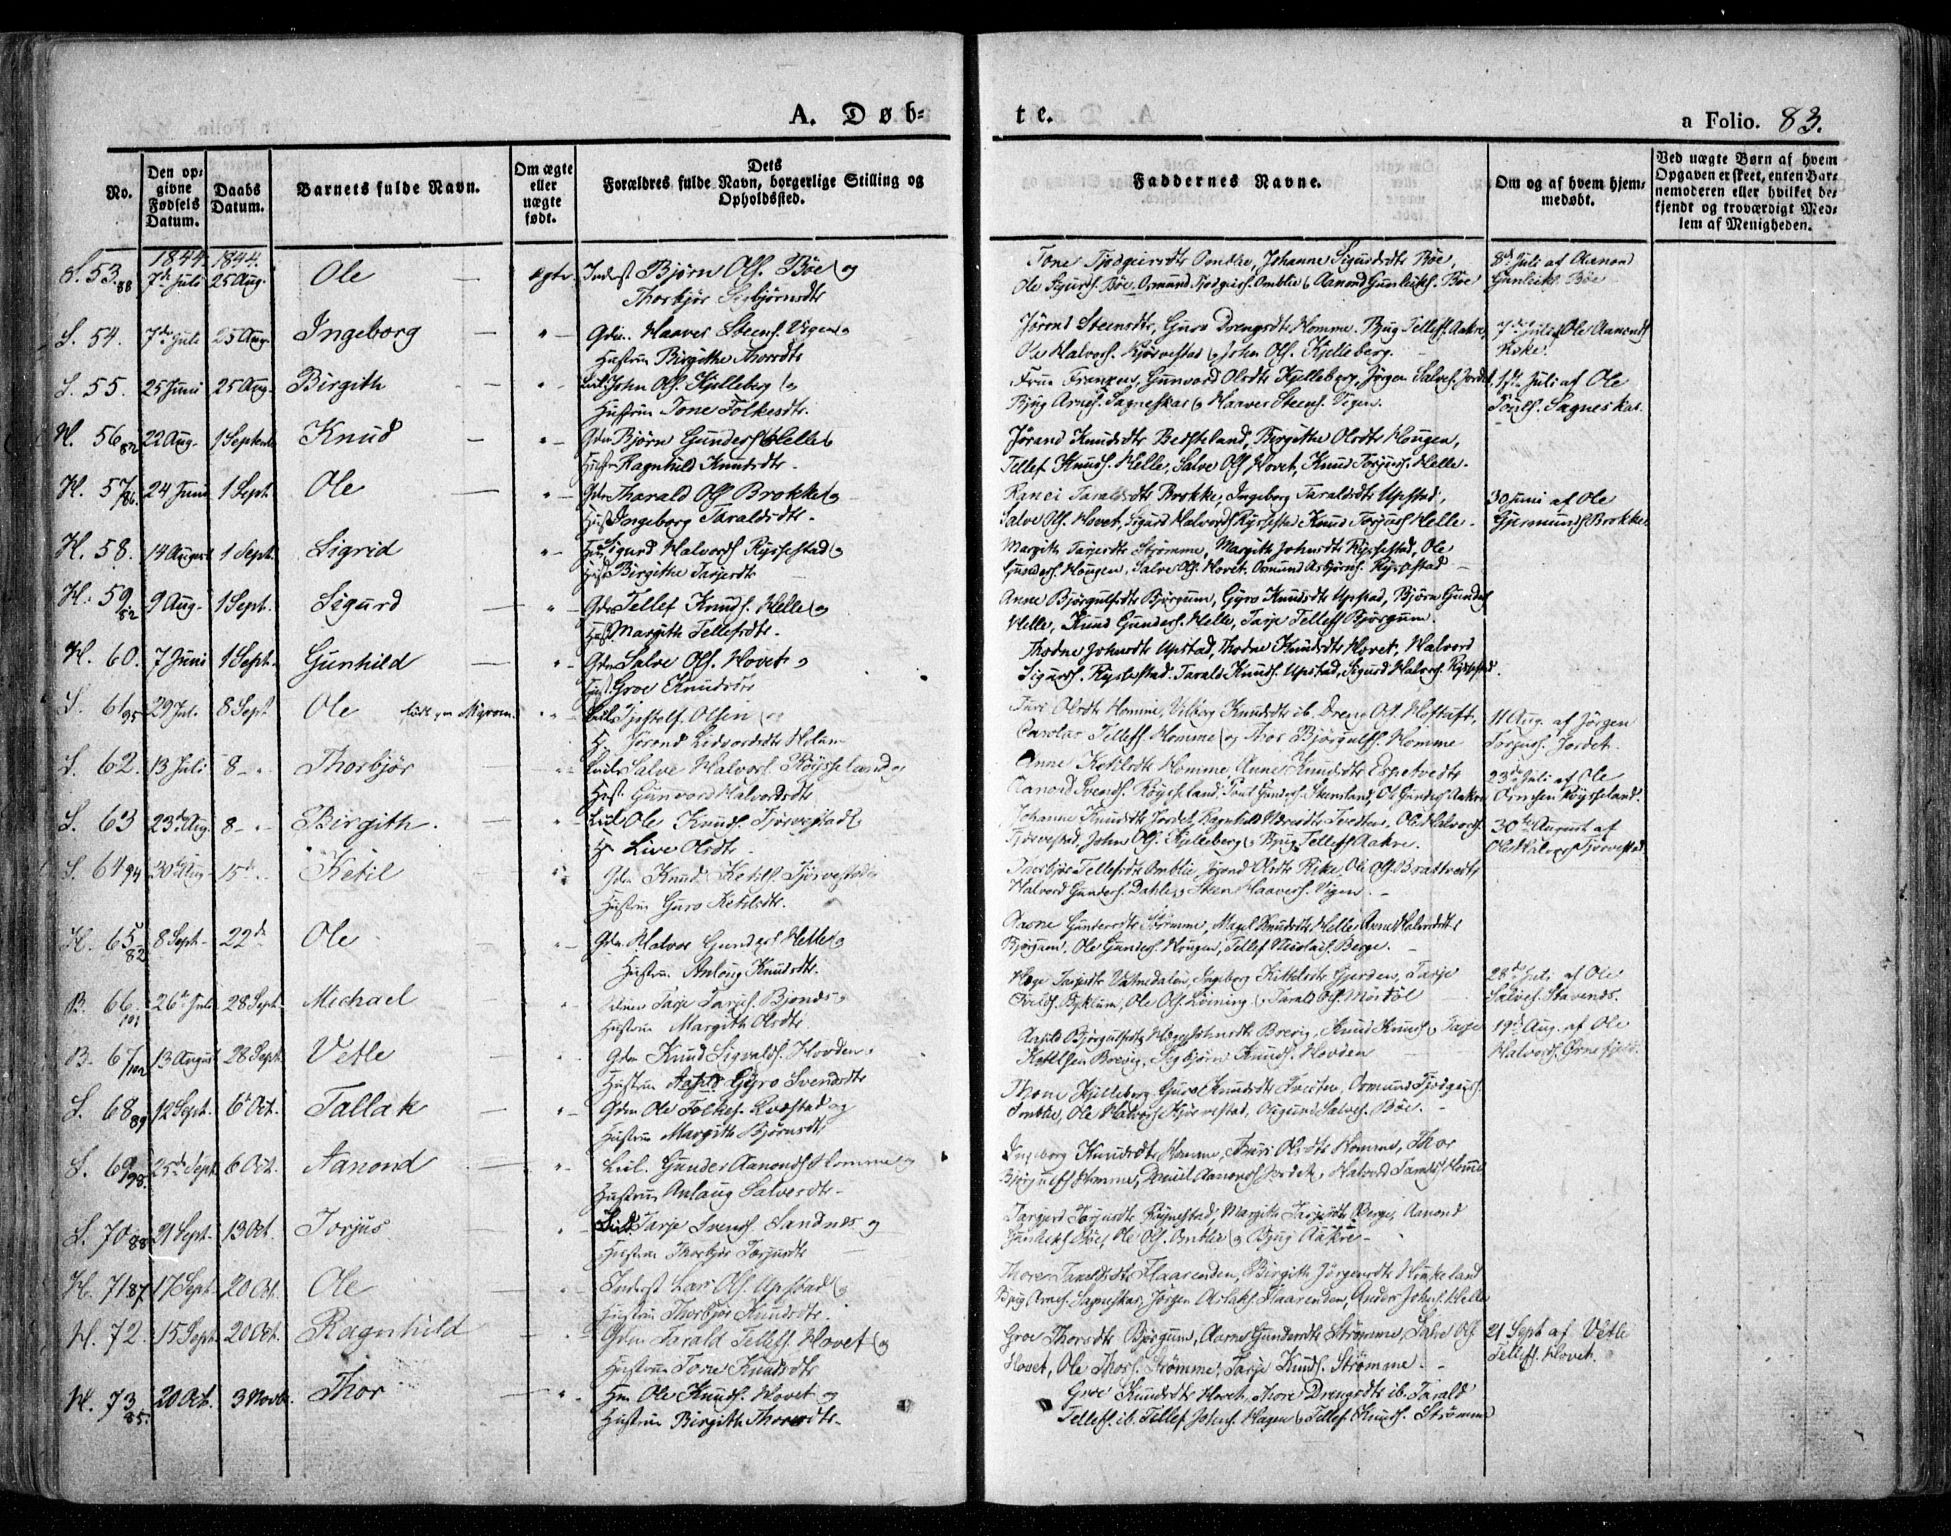 A. Døb-
te.
a Folio. 83.
No.
Den op-
givne
Fødsels
Datum.
Daabs
Datum.
Barnets fulde Navn.
Om ægte
eller
uægte
født.
Dets
Forældres fulde Navn, borgerlige Stilling og
Opholdssted.
Faddernes Navne.
Om og af hvem hjem-
medøbt.
Ved uægte Børn af hvem
Opgaven er skeet, enten Bar-
nemoderen eller hvilket be-
kjendt og troværdigt Med-
lem af Menigheden.
1844. 1844.
S. 53. 88 7de Juli 25 Aug. Ole ægte Inderst Bjørn Ols. Bøe og
Thorbjør Sigbjørnsdtr
Ole Sigurds. Bøe, Osmund Tjodgeirs. Omblie og Aanond Gunleiks. Bøe
8de Juli af Aanond
Gunleiks. Bøe
S. 54. 7de Juli 25 Aug. Ingeborg — " — Gdm. Haaver Steens. Vigen og
Hustrue Birgithe Thorsdtr
Jørend Steensdtr, Guro Drengsdtr Homme, Bjug Tellefs. Aakre,
Ole Halvors. Kjørvestad og John Ols. Kjelleberg.
7de Juli af Ole Aanonds.
S. 55. 25 Juni 25 Aug. Birgith — " — John Ols. Kjelleberg og
Hustrue Tone Folkesdtr.
Gunvord Olsdtr Kjelleberg, Jørgen Salves. Jordet,
Bjug Arnes. Sagneskar og Haaver Steens. Vigen.
1ste Juli af Ole
Sagneskar.
H. 56 82 22 Aug. 1 Septembr Knud " — Gdm Bjørn Gunders. Helle og
Hustr Ragnhild Knudsdtr.
Jørand Knudsdtr Besteland, Birgithe Olsdtr Hougen,
Tellef Knuds. Helle, Salve Ols. Hovet, Knud Torjus. Helle.
H. 57 86. 24 Juni 1 Sept. Ole — " — Gdm Tharald Ols. Brokke og
Hust Ingeborg Taraldsdtr.
Ranei Taraldsdtr Brokke, Ingeborg Taraldsdtr Upstad,
Salve Ols. Hovet, Sigurd Halvords. Rysstad Knud Torjus. Helle.
30 Juni af Ole
Gjermunds. Brokke.
H. 58. 14 August 1 Sept. Sigrid " — Sigurd Halvors. Ryssestad og
Hust Birgithe Tarjesdtr
Margith Tarjesdtr Strømme, Margith Johnsdtr Ryssestad, Ole
Gunders. Hougen, Salve Ols. Hovet, Osmund Asbjørns. Rysstad
H. 59 82 9 Aug. 1 Sept. Sigurd — " — Gdm Tellef Knuds. Helle og
Hust Margith Tellefsdtr.
Anne Bjørgulfsdtr Bjørgum, Gyro Knudsdtr Upstad, Bjørn Gunders.
Helle, Knud Gunders. Helle, Tarje Tellefs. Bjørgum.
H. 60. 7 Juni 1 Sept. Gunhild — " — Gdm Salve Ols. Hovet og
Hust. Groe Knudsdtr
Thodne Johnsdtr Upstad, Thodne Knudsdtr Hovet, Halvord
Sigurds. Rysstad, Tarald Knuds. Upstad, Sigurd Halvors. Rysstad.
S. 61 95 29 Jul. 8 Sept Ole " — Tjostolf Olsen og
Jorand Lidvordsdtr Holum
Turi Olsdtr Homme, Vilborg Knudsdtr ib. Dreng Ols. Hoftuft,
Tellefs. Homme og Thor Bjørgulfs. Homme
11 Aug. af Jørgen
Torjus. Jordet.
S. 62. 13 Juli 8 — " Thorbjør — " — Salve Halvors. Røysseland og
Hust. Gunvord Halvordsdtr
Anne Ketilsdtr Homme, Anne Knudsdtr Espetvedt
Aanond Svends. Røysseland, Poul Gunders. Steensland, Ole Gunders. Aakre
23de Juli af Ole
Røysseland.
S. 63 23de Aug. 8 — " Birgith. " — Ole Knuds. Tjørvestad og
H. Live Olsdtr.
Johanne Knudsdtr Jordet, Ragnhild
Tjørvestad, John Ols. Kjelleberg og Bjug Tellefs. Aakre.
30te August af
Ole Halvors. Tjørvestad
S. 64 94 30 Aug. 15d " Ketil " — Gdm Knud Ketils. Tjørvestad og
Hustrue Guro Ketilsdtr.
Thorbjør Tellefsdtr Omblie, Jørond Olsdtr Rike, Ole Ols. Brattvedt
Halvord Gunders. Dahle og Sten Haavers. Vigen.
H. 65 82 8 Sept. 22d Ole — " — Gdm. Halvor Gunders. Helle og
Hustrue Anlaug Knudsdtr.
Aasne Gundersdtr Strømme, Knudsdtr Helle, Anne Halvordsdtr
Bjørgum, Ole Gunders. Hougen, Tellef Nicolai Berge.
B. 66. 101 26de Juli 28 Sept. Michael — " Tarje Tarjes. Bjones og
Hustrue Margith Olsdtr
Tarjesdtr Vatnedalen, Ingeborg Kittelsdtr Gjerden, Tarje
Byklum, Ole Ols. Løining og Tarald Ols. Mörtöl
28de Juli af Ole
Salves. Stavenes.
B. 67 102 13 August 28 Sept. Vetle — " Gdm Knud Sigvalds. Hovden.
Hustrue Gyro Svendsdtr
Aasild Bjørgulfsdtr, Johnsdtr Brevig, Knud Knuds. og Tarje
Ketilsen Brevig, Sigbjørn Knuds. Hovden
19de Aug. af Ole
Halvors. Ørnefjeld.
S. 68 89 12 Sept. 6te Oct. Tallak — " — Gdm Ole Folkes. Kvæstad og
Hustrue Margith Bjørnsdtr
Thone Kjelleberg, Guro Knudsdtr Tveiten, Osmund Tjodgeirs.
Omblie, Ole Halvors. Kjørvestad, Sigurd Salves. Bøe.
S. 69 98. 25de Sept. 6 Oct. Aanond — " — Gunder Aanonds. Homme og
Hustrue Anlaug Salvesdtr
Ingeborg Knudsdtr Homme, Turi Olsdtr Homme, Thor
Bjørgulfs. Homme, Aanonds. Jordet, Halvord
S. 70 88 21 Sept. 13 Oct. Torjus " — Tarje Svends. Sandnes og
Hustrue Thorbjør Torjusdtr
Targjerd Torjusdtr Rygnestad, Margith Tarjesdtr Berge, Aanond
Gunleiks. Bøe, Ole Ols. Omblie og Bjug Aakre.
H. 71 87 17 Sept. 20 Oct. Ole " — Inderst Lars Ols. Upstad og
Hustrue Thorbjør Knudsdtr.
Thore Taraldsdtr Flaarenden, Birgith Jørgensdtr Kinkeland
Bjug Arnes. Sagneskar, Jørgen Aslaks. Flaarenden, Johns. Helle
H. 72. 15 Sept. 20 Oct. Ragnhild " — Gdm Tarald Tellefs. Hovet og
Hustrue Tone Knudsdtr
Groe Thorsdtr Bjørgum, Aasne Gundersdtr Strømme, Salve Ols.
Hovet, Ole Thors. Strømme, Tarje Knuds. Strømme.
21 Sept. af Vetle
Tellefs. Hovet.
H. 73 85. 20 Oct. 3 Novbr. Thor — " Gdm Ole Knuds. Hovet og
Hustrue Birgith Thoresdtr.
Groe Knudsdtr Hovet, Thore Drengsdtr ib. Tarald
Tellefs. ib. Tellef Johns. Hagen og Tellef Knuds. Strømme